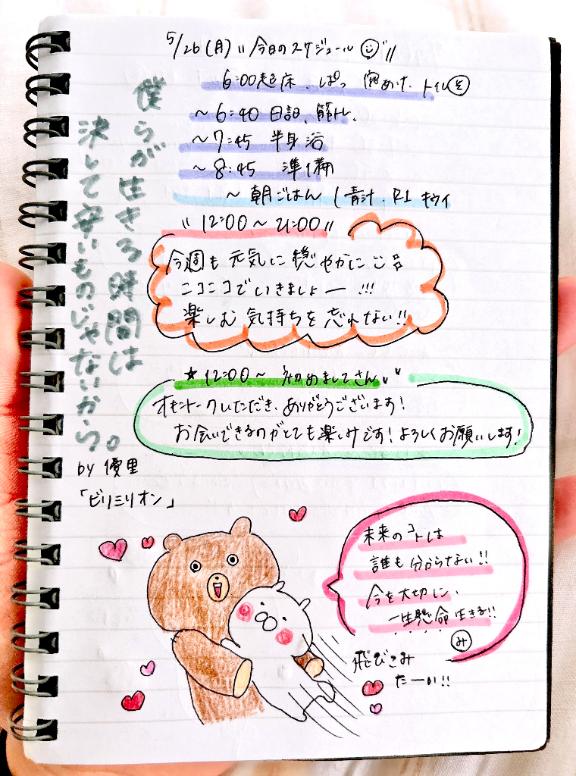 5/26(月)"今日のスケジュール"
6:00起床、ぱっ 窓あけ、トイレ
〜6:40 日記、筋トレ、
〜7:45 半身浴
〜8:45 準備
〜朝ごはん (青汁、R1 キウイ
"12:00〜21:00"
今週も元気に穏やかに
ニコニコでいきましょー!!!
楽しむ気持ちを忘れない!!
★12:00〜初めましてさん
オキニトークしただき、ありがとうございます!
お会いできるのがとても楽しみです!よろしくお願いします!
僕らが生きる時間は
決して安いものじゃないから。
by 優里
「ビリミリオン」
未来のコトは
誰も分からない!!
今を大切に、
一生懸命生きる!!
み
飛びこみ
たーい!!